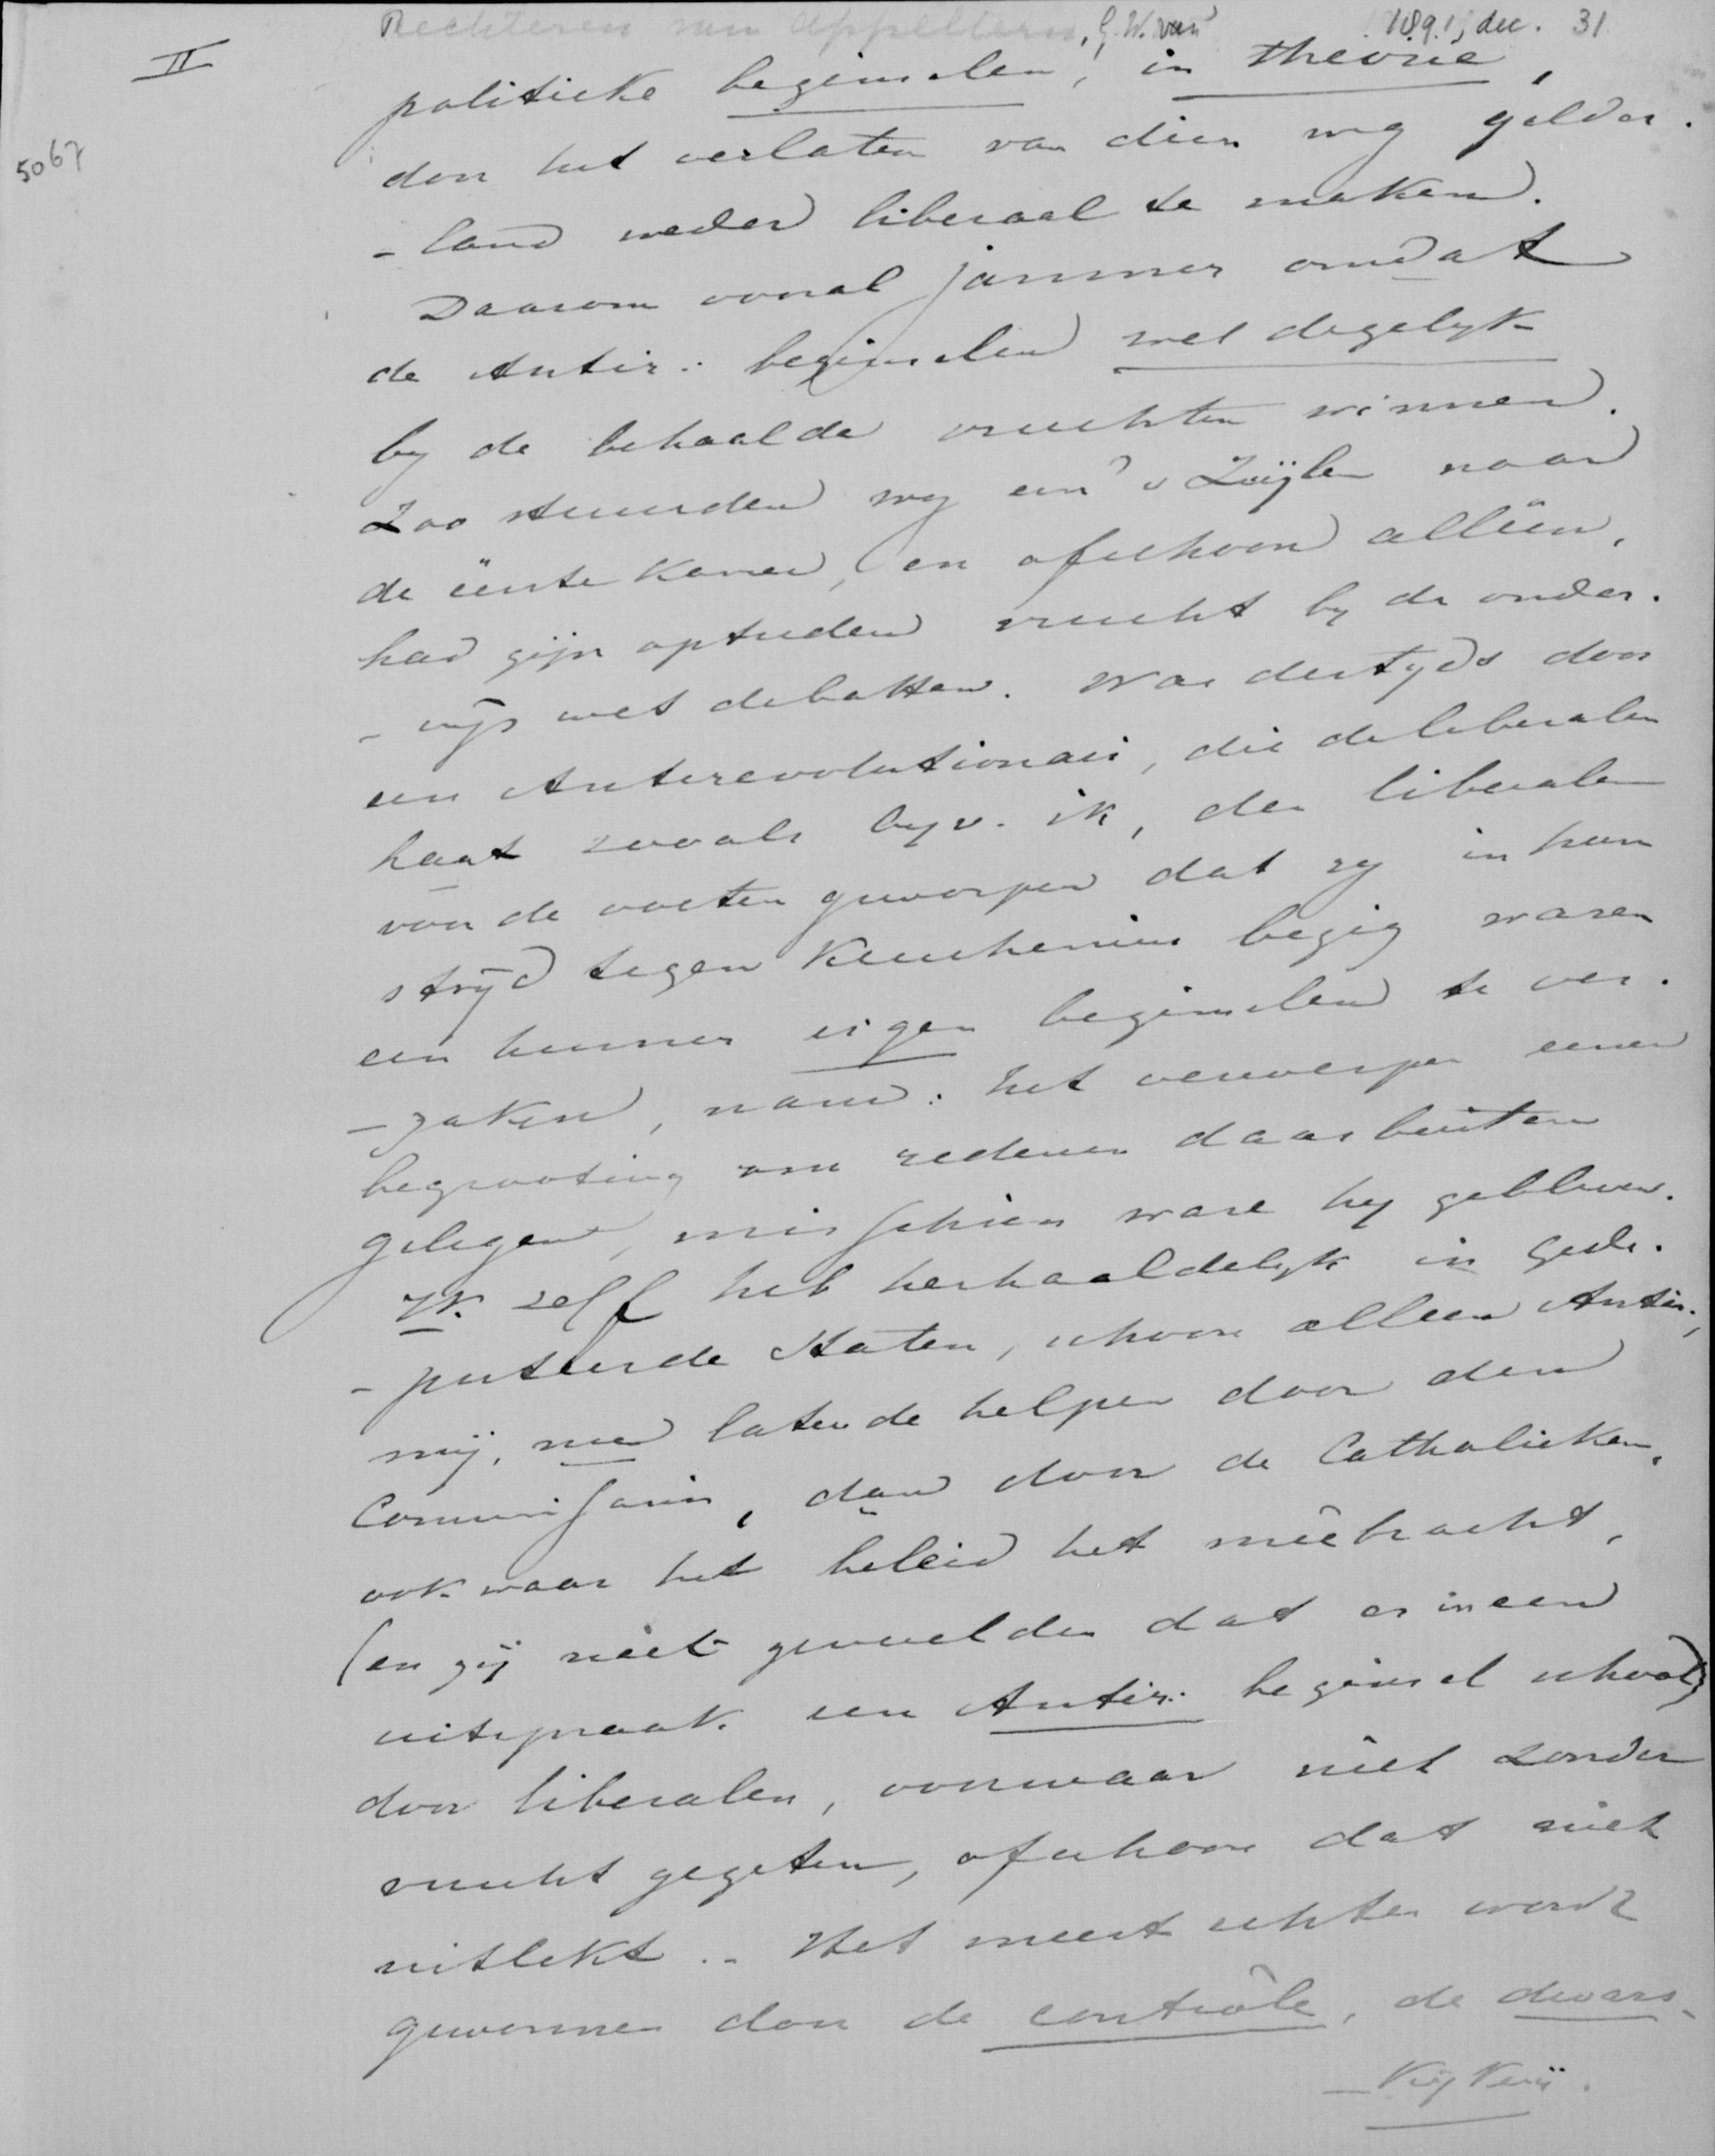 Rechteren van Appeltern, G. W. van 1891, dec. 31
II
5067
politieke beginselen, in theorie,
don het verlaten van dien weg gelder-
- land weder liberaal te maken.
Daarom vooral jammer omdat
de Antir: beginselen wel degelyk
by de behaalde vruchten winnen.
Zoo stuurden wy een v Zuijlen naar
de éérste kamer, en ofschoon alléén,
had zijn optreden vrucht by de onder-
- wijs wet debatten. War destyds door
een Antirevolutionair, die de liberalen
haat zooals byv. ik, den liberalen
voor de voeten geworpen dat zy in hun
stryd tegen Keuchenius bezig waren
een hunner eigen beginselen te ver-
- zaken, name: het verwerpen eener
begrooting om redenen daar buiten
gelegen, misschien ware hy gebleven.
Ik zelf heb herhaaldelyk in Gede-
- puteerde Staten, schoon alleen Antir.,
mij, meer latende helpen door den
Commissaris, dan door de Catholieken,
ook waar het beleid het meêbracht,
(en zij niet gevoelden dat er in een
uitspraak een Antir: beginsel school)
door liberalen, voorwaar niet zonder
vrucht gezeten, ofschoon dat niet
uitlekt.. Het meest echter wordt
gewonnen door de contrôle, de dwars-
- kijkerij.